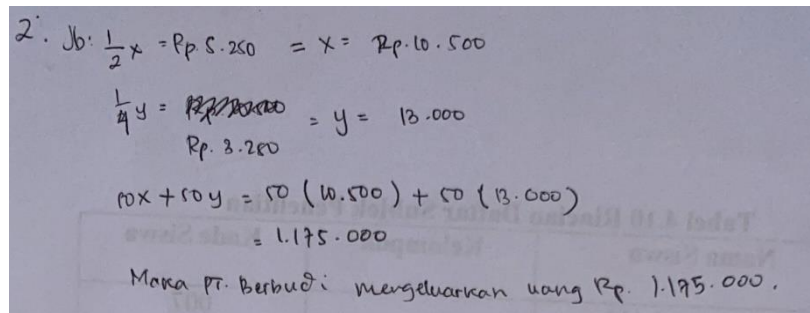 2. Jb: 1/2 x = Rp. 5.250 = x = Rp. 10.500
1/4 y = = y = 13.000
Rp. 3.250
50x + 50y = 50 (10.500) + 50 (13.000)
= 1.175.000
Maka PT. Berbudi mengeluarkan uang Rp. 1.175.000.